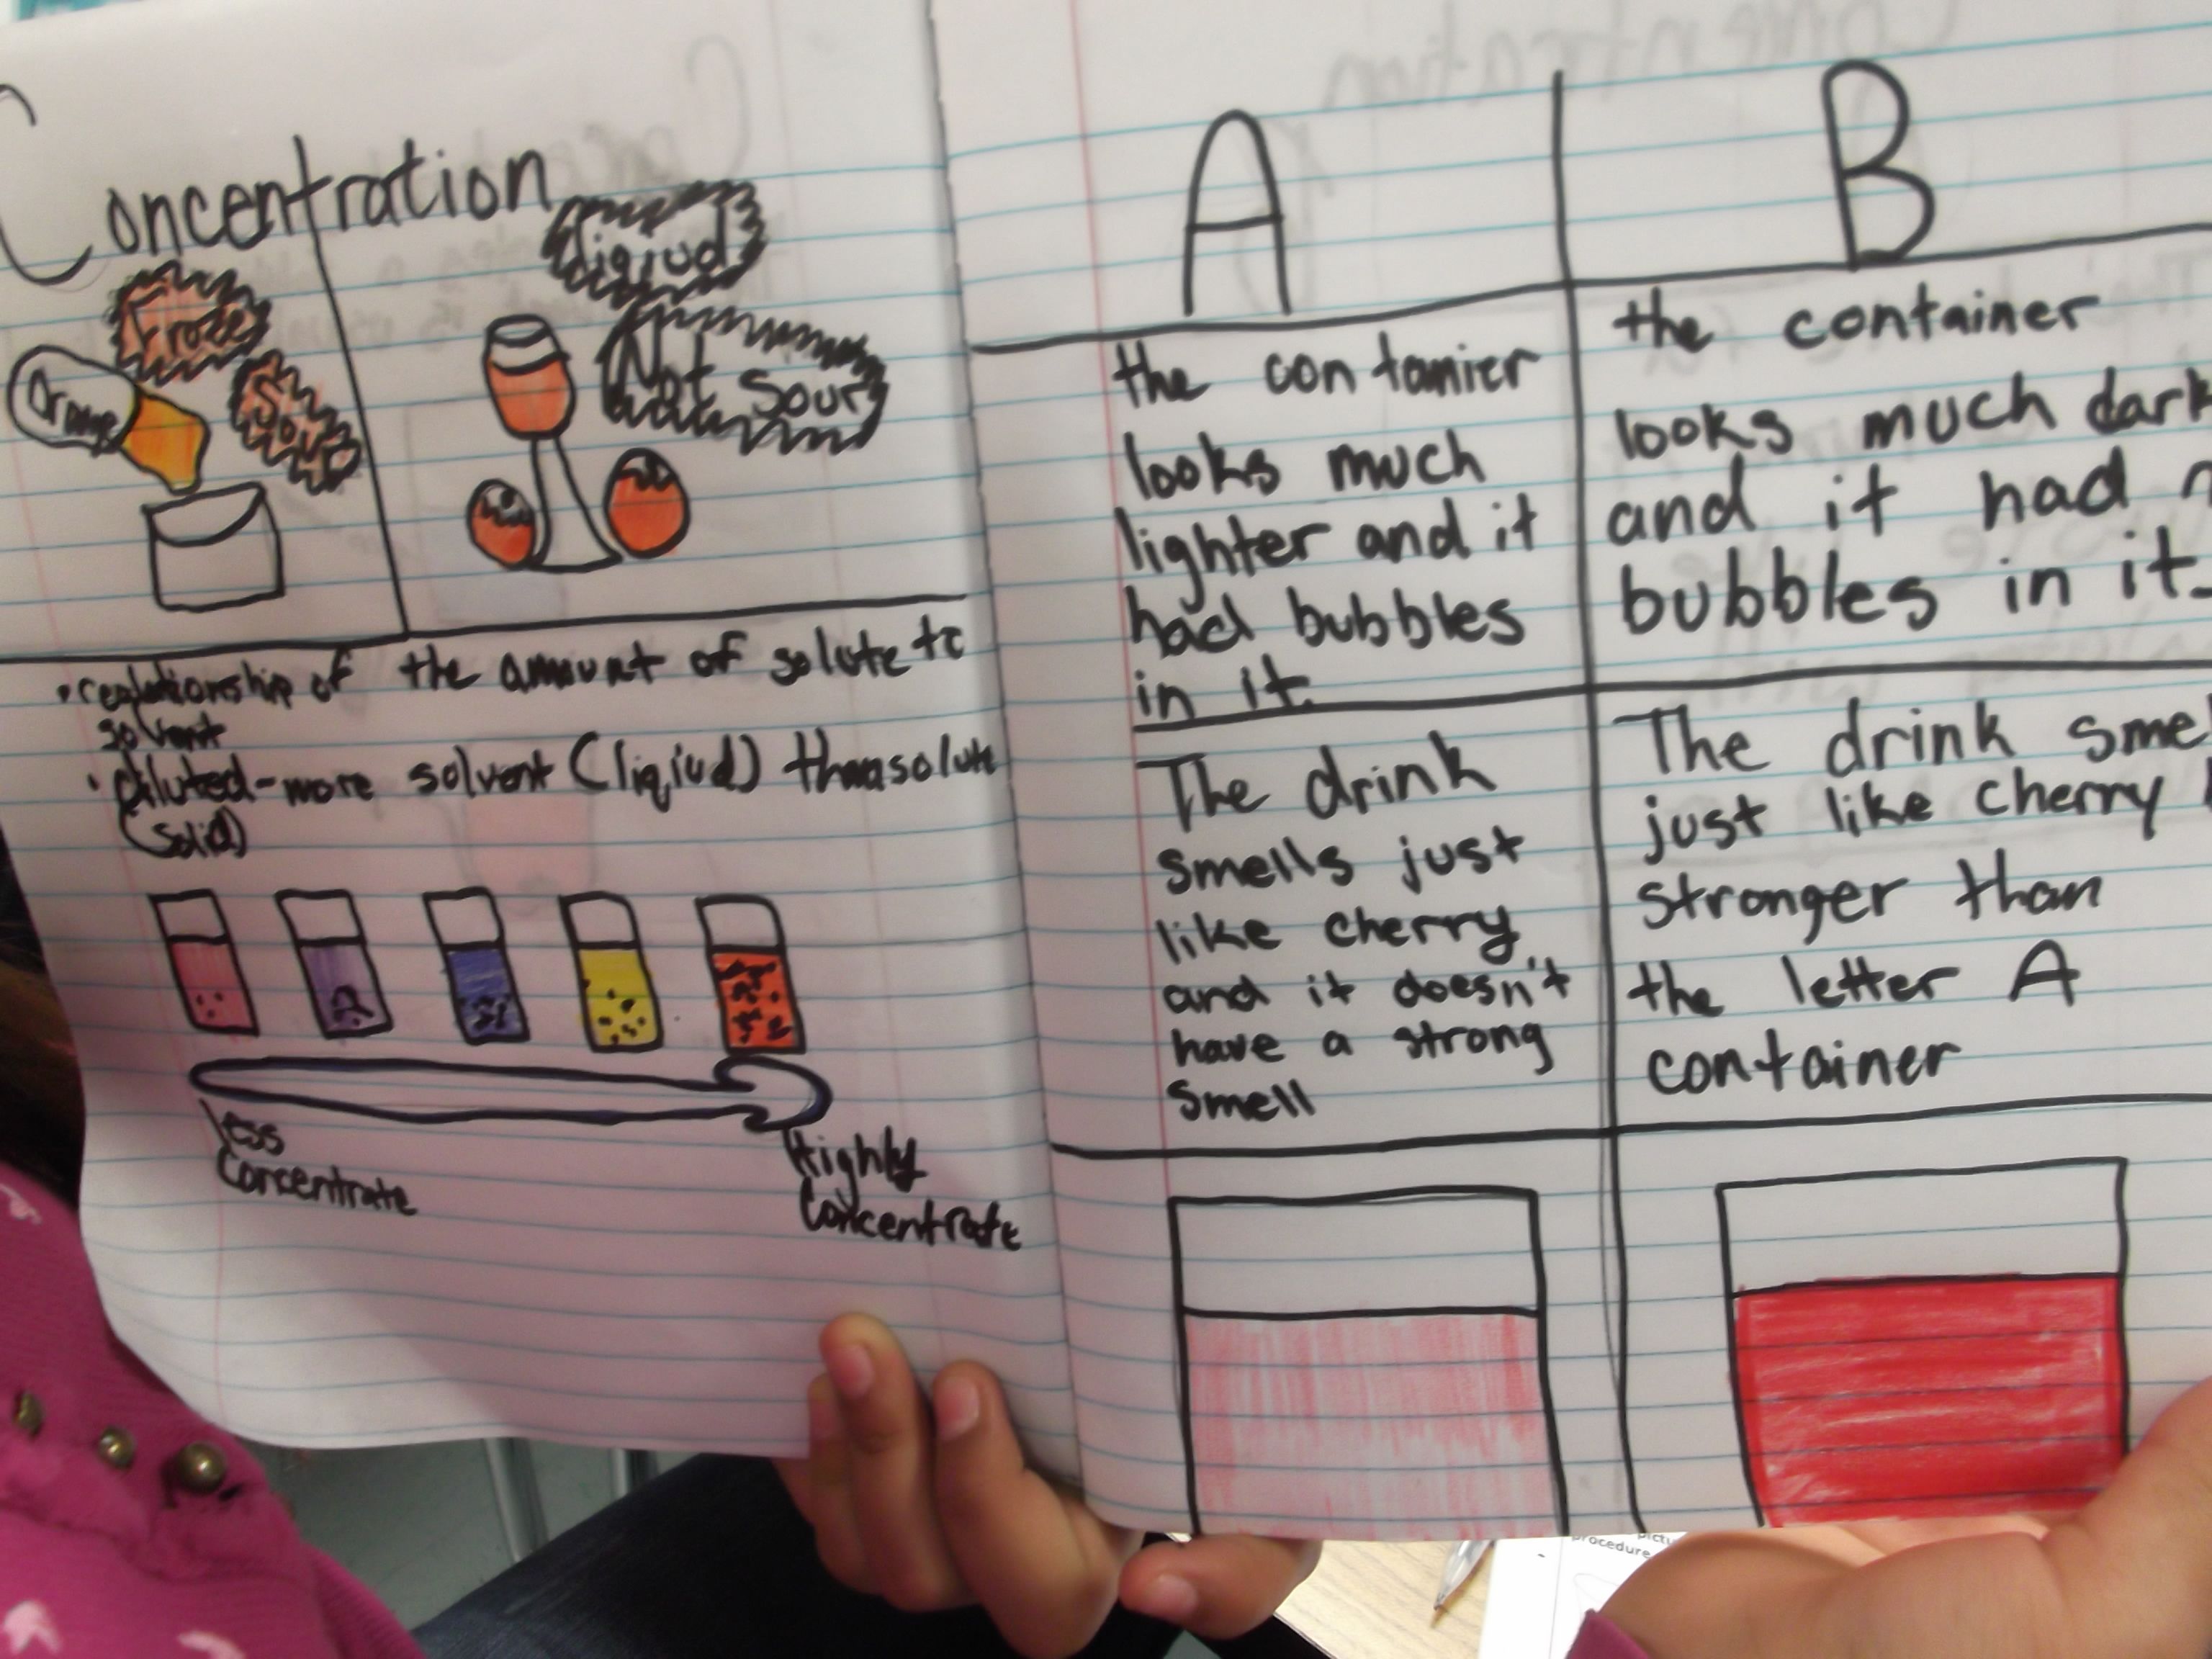 Concentration
Froze
Orange
Sour
liqiud
Not Sour
• reqlationship of the amount of solute to
solvent
• Diluted - more solvent (liqiud) than solute
(Solid)
less
Concentrate
Highly
Concentrate
A
the contamier
looks much
lighter and it
had bubbles
in it.
The drink
smells just
like cherry
and it doesn't
have a strong
smell
B
the container
looks much dark
and it had
bubbles in it.
The drink smel
just like cherry
stronger than
the letter A
container
procedure